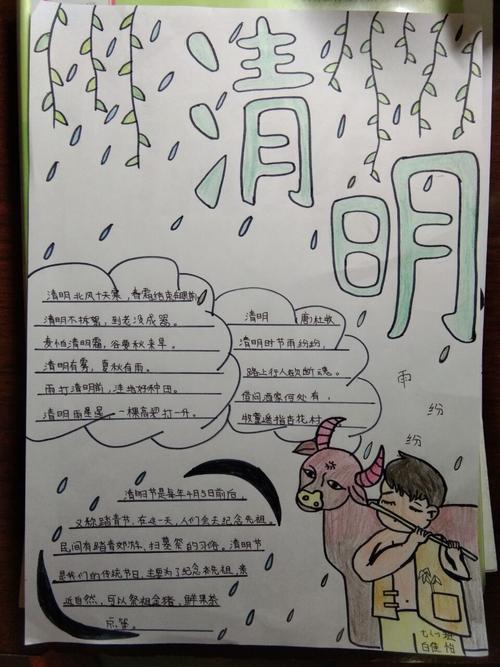 清明
清明北风十天寒，春霜结束在眼前
清明不拆絮，到老没成器。
麦怕清明霜，谷要秋来旱。
清明有雾，夏秋有雨。
雨打清明前，洼地好种田。
清明雨星星，一棵高粱打一升。
清明 唐)杜牧
清明时节雨纷纷，
路上行人欲断魂。
借问酒家何处有，
牧童遥指杏花村
雨
纷
纷
清明节是每年4月5日前后，
又称踏青节，在这一天，人们会去纪念先祖。
民间有踏青郊游、扫墓祭的习俗。清明节
是我们的传统节日，主要为了纪念先祖，亲
近自然，可以祭祖金猪，鲜果茶
点等。
七(1)班
白佳怡